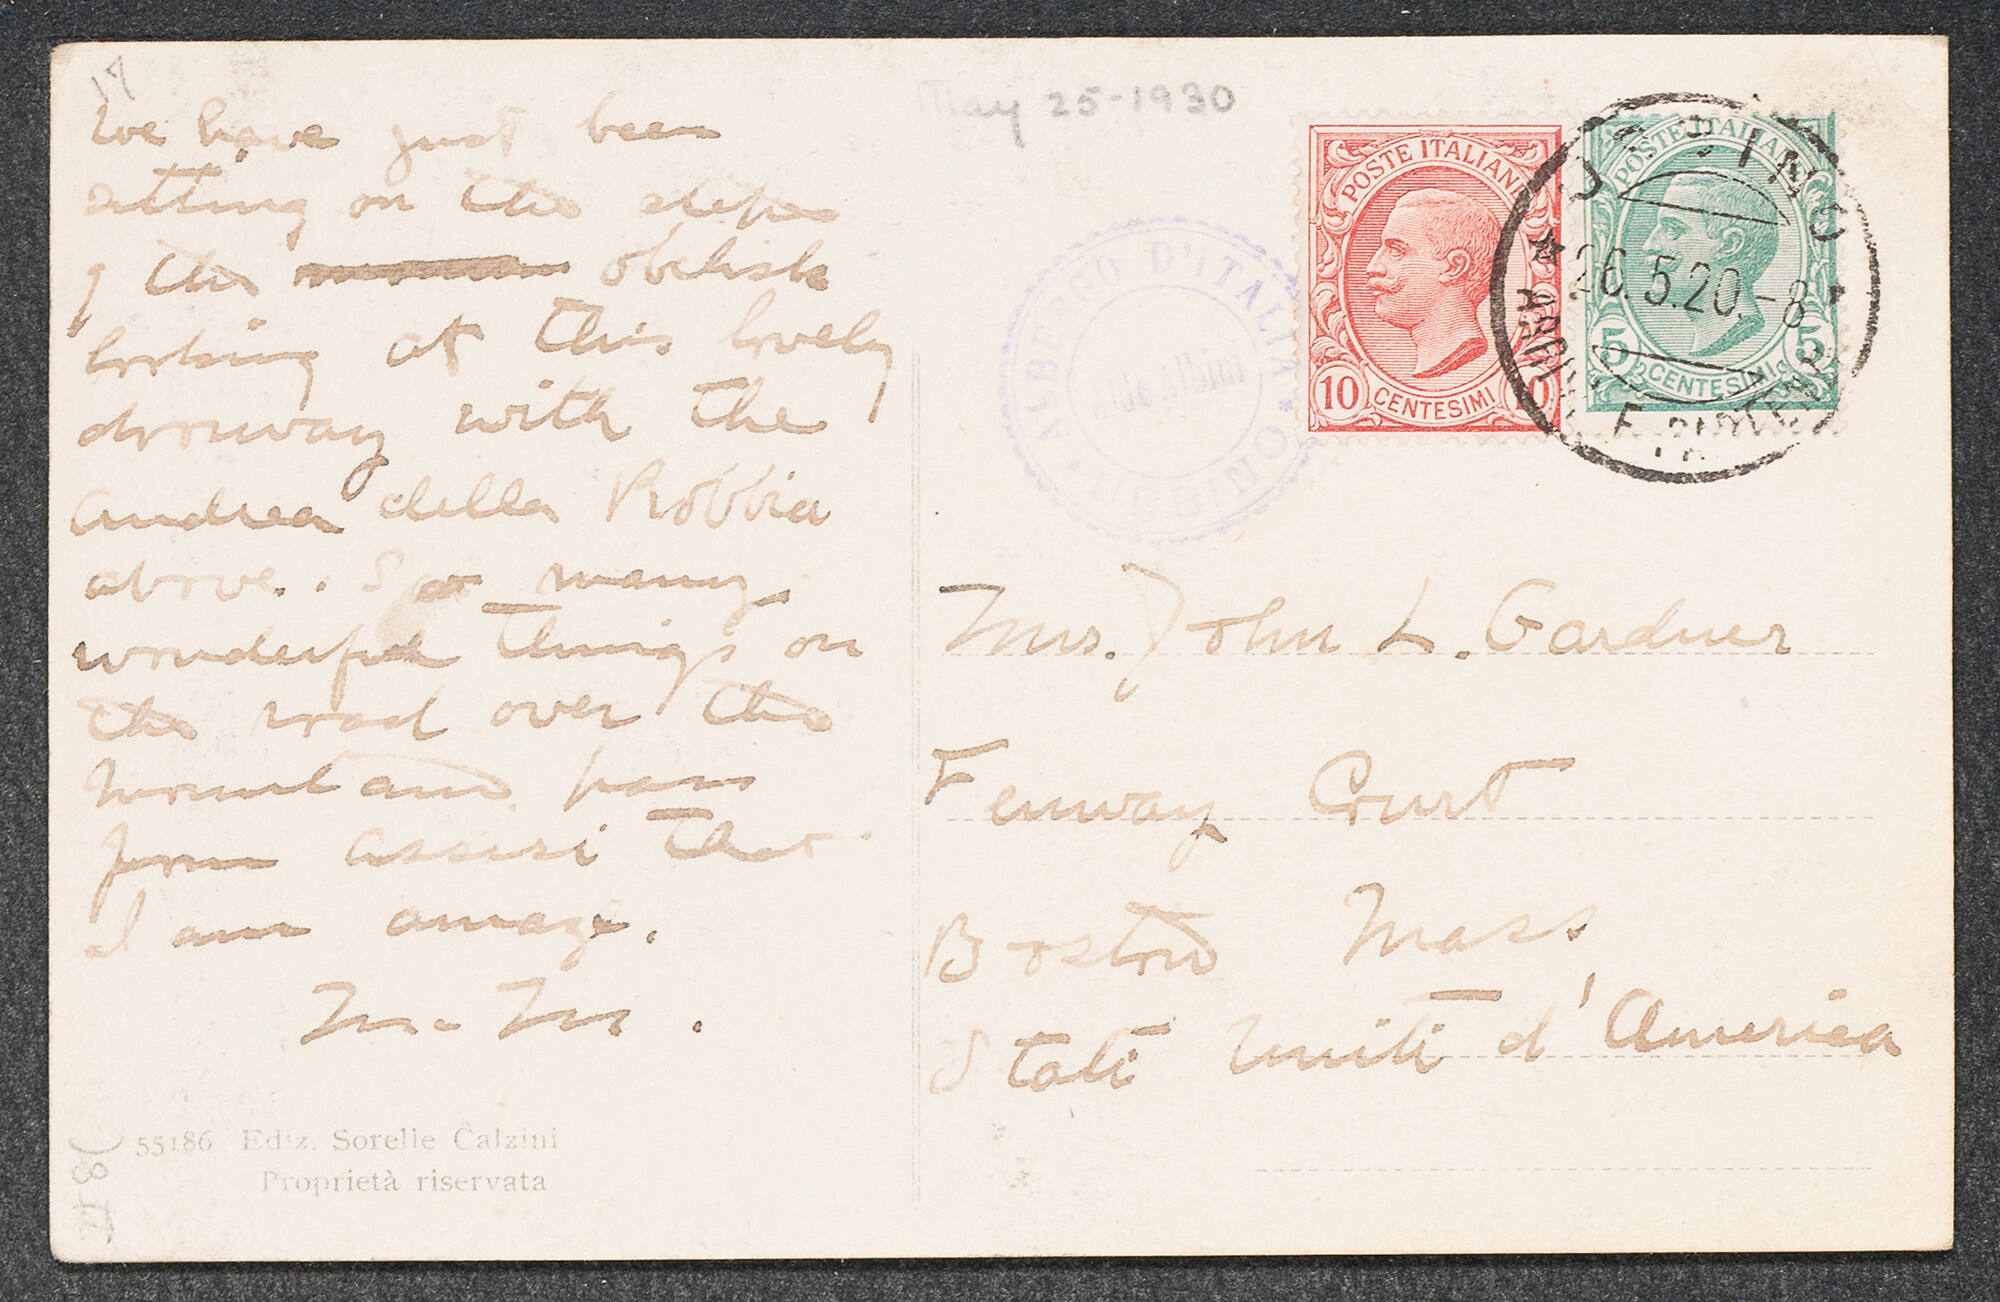 17
We have just been
sitting on the steps
of the obelisk
looking at this lovely
doorway with the
Andrea della Robbia
above. So many
wonderful things on
the road over the
mountains pass
from Assisi that
I am amaze.
M. M.
55186 Ediz. Sorelle Calzini
Proprietà riservata
May 25-1930
ALBERGO D'ITALIA
Aldo Albini
* URBINO *
POSTE ITALIANE
10 CENTESIMI 10
POSTE ITALIANE
5 CENTESIMI 5
URBINO
26.5.20.-8
ARRIVI E PARTENZE
Mrs. John L. Gardner
Fenway Court
Boston Mass
Stati Uniti d'America